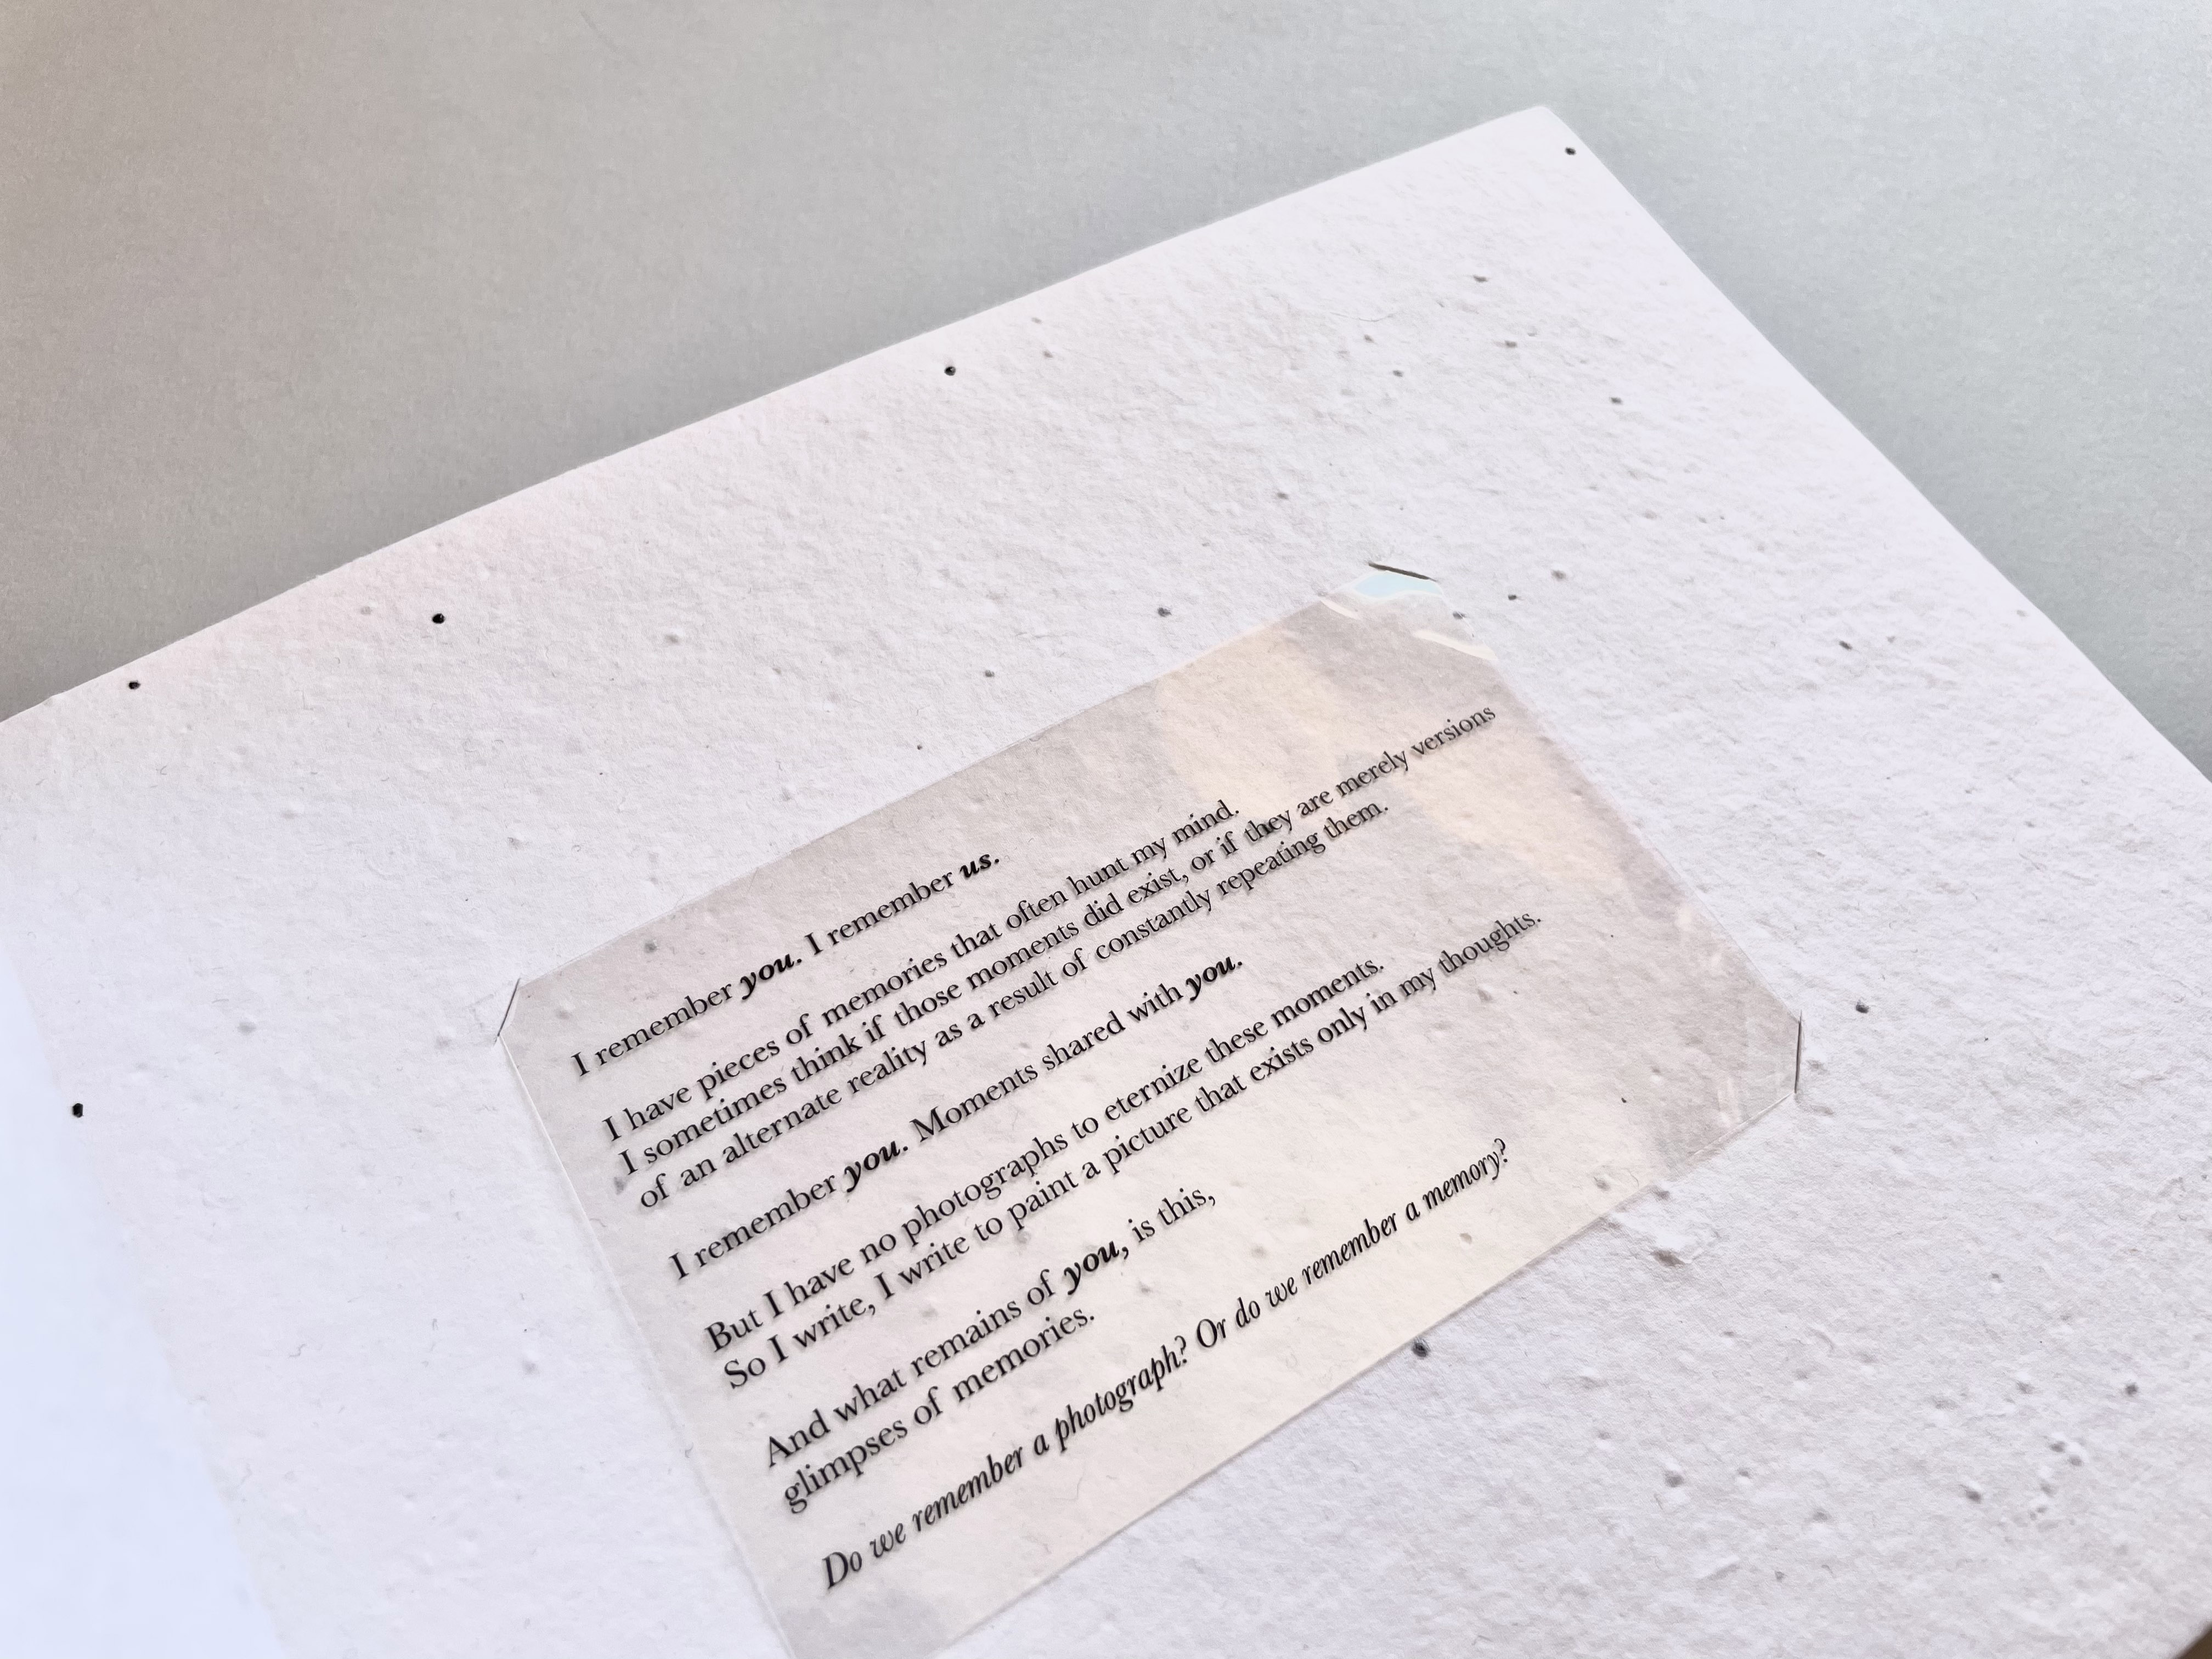 I remember you. I remember us.
I have pieces of memories that often hunt my mind.
I sometimes think if those moments did exist, or if they are merely versions
of an alternate reality as a result of constantly repeating them.
I remember you. Moments shared with you.
But I have no photographs to eternize these moments.
So I write, I write to paint a picture that exists only in my thoughts.
And what remains of you, is this,
glimpses of memories.
Do we remember a photograph? Or do we remember a memory?